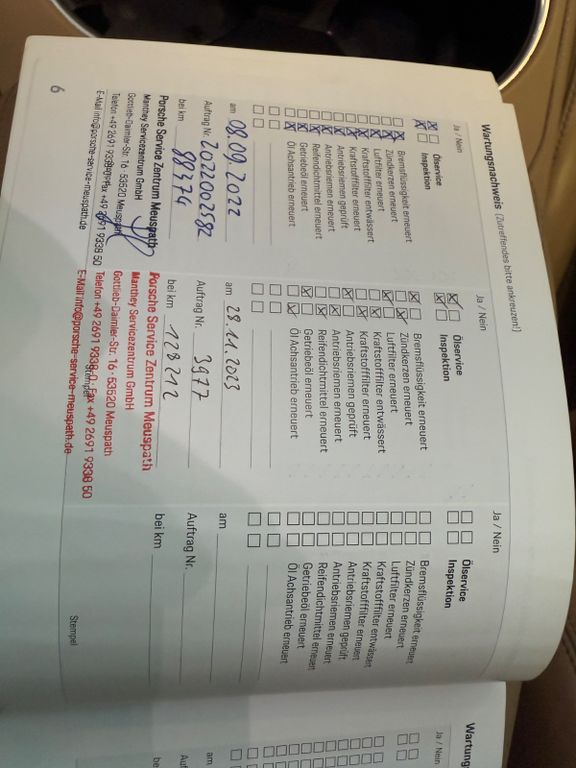 Wartungsnachweis (Zutreffendes bitte ankreuzen!)
Ja / Nein
Ölservice
Inspektion
Bremsflüssigkeit erneuert
Zündkerzen erneuert
Luftfilter erneuert
Kraftstofffilter entwässert
Kraftstofffilter erneuert
Antriebsriemen geprüft
Antriebsriemen erneuert
Reifendichtmittel erneuert
Getriebeöl erneuert
Öl Achsantrieb erneuert
am 08.09.2022
Auftrag Nr. 2022002582
bei km 88374
Porsche Service Zentrum Meuspath
Manthey Servicezentrum GmbH
Gottlieb-Daimler-Str. 16 · 53520 Meuspath
Telefon +49 2691 9338 0 Fax +49 2691 9338 50
E-Mail info@porsche-service-meuspath.de
6
Ja / Nein
Ölservice
Inspektion
Bremsflüssigkeit erneuert
Zündkerzen erneuert
Luftfilter erneuert
Kraftstofffilter entwässert
Kraftstofffilter erneuert
Antriebsriemen geprüft
Antriebsriemen erneuert
Reifendichtmittel erneuert
Getriebeöl erneuert
Öl Achsantrieb erneuert
am 28.11.2023
Auftrag Nr. 3977
bei km 128212
Porsche Service Zentrum Meuspath
Manthey Servicezentrum GmbH
Gottlieb-Daimler-Str. 16 · 53520 Meuspath
Telefon +49 2691 9338 0 · Fax +49 2691 9338 50
Stempel
E-Mail info@porsche-service-meuspath.de
Ja / Nein
Ölservice
Inspektion
Bremsflüssigkeit erneuert
Zündkerzen erneuert
Luftfilter erneuert
Kraftstofffilter entwässert
Kraftstofffilter erneuert
Antriebsriemen geprüft
Antriebsriemen erneuert
Reifendichtmittel erneuert
Getriebeöl erneuert
Öl Achsantrieb erneuert
am
Auftrag Nr.
bei km
Stempel
Wartung
Ja / Nein
am
Auf
be